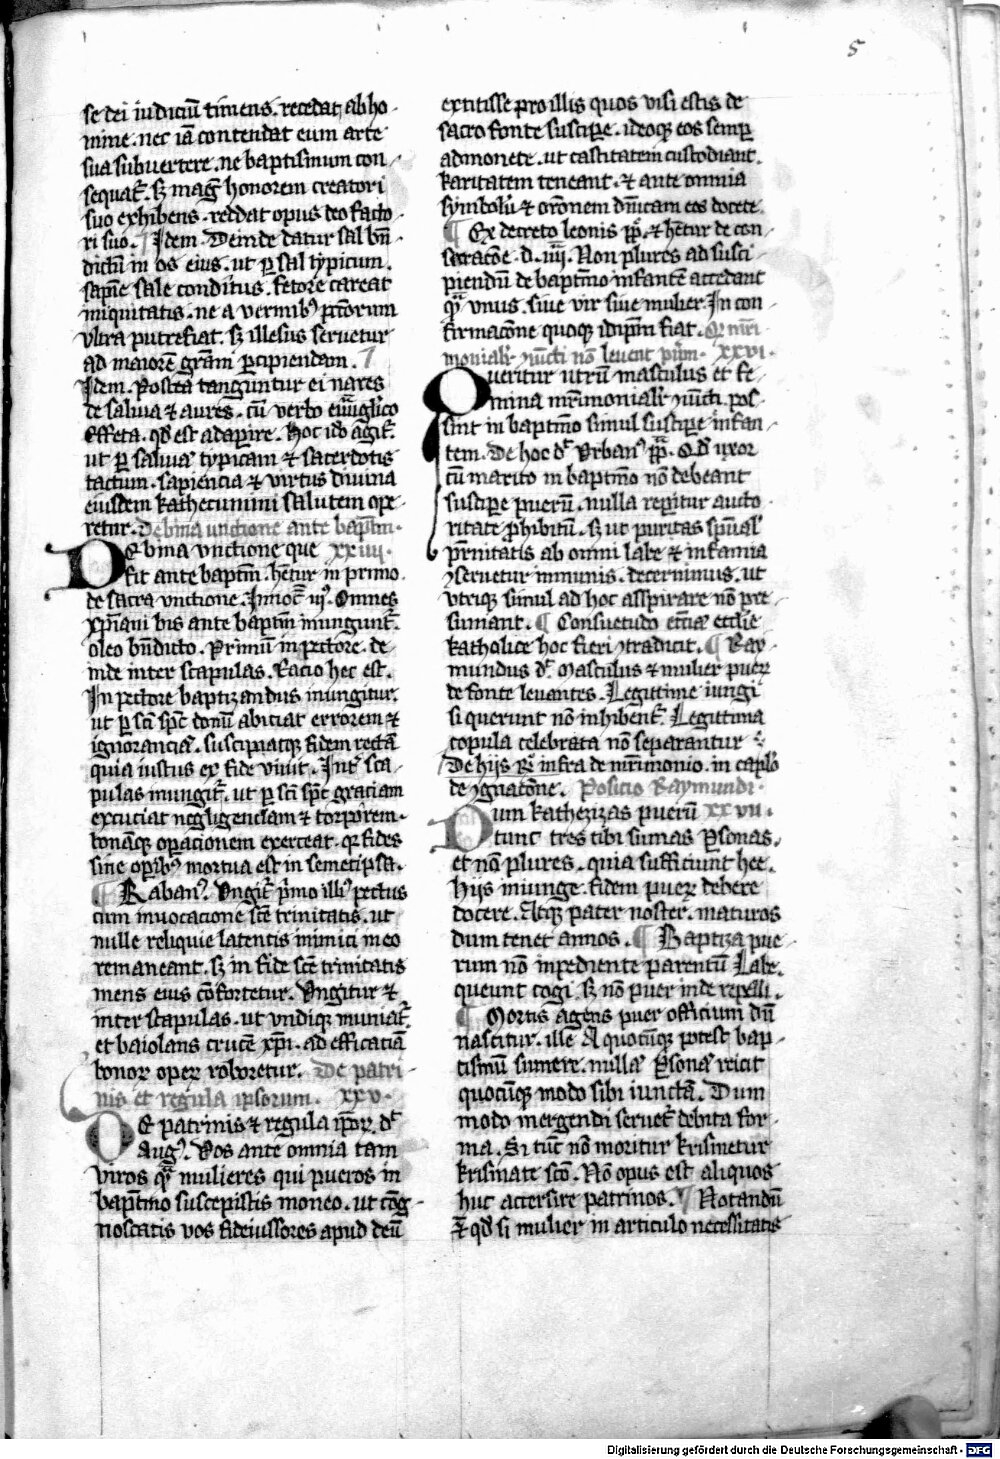 5
se dei iudiciū timens. recedat ab ho-
mine. nec iā contendat eum arte
sua subuertere. ne baptismum con-
sequat̄. sꝫ maḡ honorem creatori
suo exhibens. reddat opus deo facto-
ri suo. ¶ Idem. Deinde datur sal bn̄-
dictū in os eius. ut ꝑ sal typicum.
sapīe sale conditus. fetore careat
iniquitatis. ne a vermibꝰ pctōrum
vltra putrefiat. sꝫ illesus seruetur
ad maiorē grām ꝑcipiendam. ¶
Idem. Postea tanguntur ei nares
de saliua ⁊ aures. cū verbo ewāglico
effeta. qd̄ est adapire. hoc ido āgit̄.
ut ꝑ saliuā typicam ⁊ sacerdotis
tactum. sapiencia ⁊ virtus diuina
eiusdem kathecumini salutem ope-
retur. De bina unctione ante baptm̄.
De bina vnctione que xxiiii.
fit ante baptm̄. hētur in primo.
de sacra vnctione. Innoc̄ iiiꝰ. Omnes
xp̄iani bis ante baptm̄ inungunt̄.
oleo bn̄dicto. Primū in pectore. de-
inde inter scapulas. Racio hec est.
In pectore baptizandus inungitur.
ut ꝑ sci spc̄ donū abiciat errorem ⁊
ignoranciā. suscipiatqꝫ fidem rectā
quia iustus ex fide viuit. Int̄ sca-
pulas inungit̄. ut ꝑ sci spc̄ graciam
excuciat negligenciam ⁊ torporem.
bonāqꝫ operacionem exerceat. qr̄ fides
sine operibꝰ mortua est in semetipsa.
¶ Rabanꝰ. Vngit̄ pͥmo illiꝰ pectus
cum inuocacione scē trinitatis. ut
nulle reliquie latentis inimici in eo
remaneant. sꝫ in fide scē trinitatis
mens eius cōfortetur. Vngitur ⁊
inter scapulas. ut vndiqꝫ muniat̄.
et baiolans crucē xpi. ad efficaciā
bonoꝝ operꝝ roboretur. De patri-
nis et regula ipsorum. xxv.
De patrinis ⁊ regula ip̄oꝝ. dc̄
Augꝰ. Vos ante omnia tam
viros qͣ mulieres qui pueros in
baptmō suscepistis moneo. ut cōg-
noscatis vos fideiussores apud deū
extitisse pro illis quos visi estis de
sacro fonte suscipe. ideoqꝫ eos semꝑ
admonete. ut castitatem custodiant.
karitatem teneant. ⁊ ante omnia
symbolū ⁊ orōnem dn̄icam eos docete.
¶ Ex decreto leonis pp̄. ⁊ hētur de con-
secracōe. d. iiii. Non plures ad susci-
piendū de baptmō infantē accedant
qͣ vnus. siue vir siue mulier. In con-
firmacōne quoqꝫ idip̄m fiat. Qr̄ mr̄i
monialiꝰ ꝯiūcti nō leuent pūm. xxvi.
Queritur utrū masculus et fe-
mina mr̄imonialiꝰ ꝯiūcti. pos-
sint in baptmō simul suscipe infan-
tem. De hoc dc̄ Vrbanꝰ pp̄. Qd̄ uxor
cū marito in baptmō nō debeant
suscipe puerū. nulla reperitur aucto-
ritate ꝓhibitū. sꝫ ut puritas spūal̄
pr̄nitatis ab omni labe ⁊ infamia
ꝯseruetur immunis. decernimus. ut
vterqꝫ simul ad hoc asspirare nō pre-
sumant. ¶ Consuetudo etiā ecclīe
katholice hoc fieri ꝯtradicit. ¶ Ray-
mundus dc̄. Masculus ⁊ mulier pueꝝ
de fonte leuantes. Legittime iungi
si querunt nō inhibent̄. Legittima
copula celebrata nō separantur
De hijs rͦ infra de mr̄imonio. in caplō
de ꝯgnacōne. Posicio Raymundi.
Dum kathezizas puerū xxvii.
tunc tres tibi sumas ꝑsonas.
et nō plures. quia sufficiunt hee.
Hijs iniunge. fidem pueꝝ debere
docere. Atqꝫ pater noster. maturos
dum tenet annos. ¶ Baptiza pue-
rum nō inpediente parentū Labe.
queunt cogi. sꝫ nō puer inde repelli.
¶ Mortis agens puer officium dū
nascitur. ille A quocūqꝫ potest bap-
tismū sumere. nullā ꝑsonā reicit
quocūqꝫ modo sibi iunctā. Dum
modo mergendi seruet̄ debita for-
ma. Si tūc nō moritur krismetur
krismate scō. Nō opus est aliquos
huc accersire patrinos. ¶ Notandū
ē qd̄ si mulier in articulo necessitatis
Digitalisierung gefördert durch die Deutsche Forschungsgemeinschaft - DFG